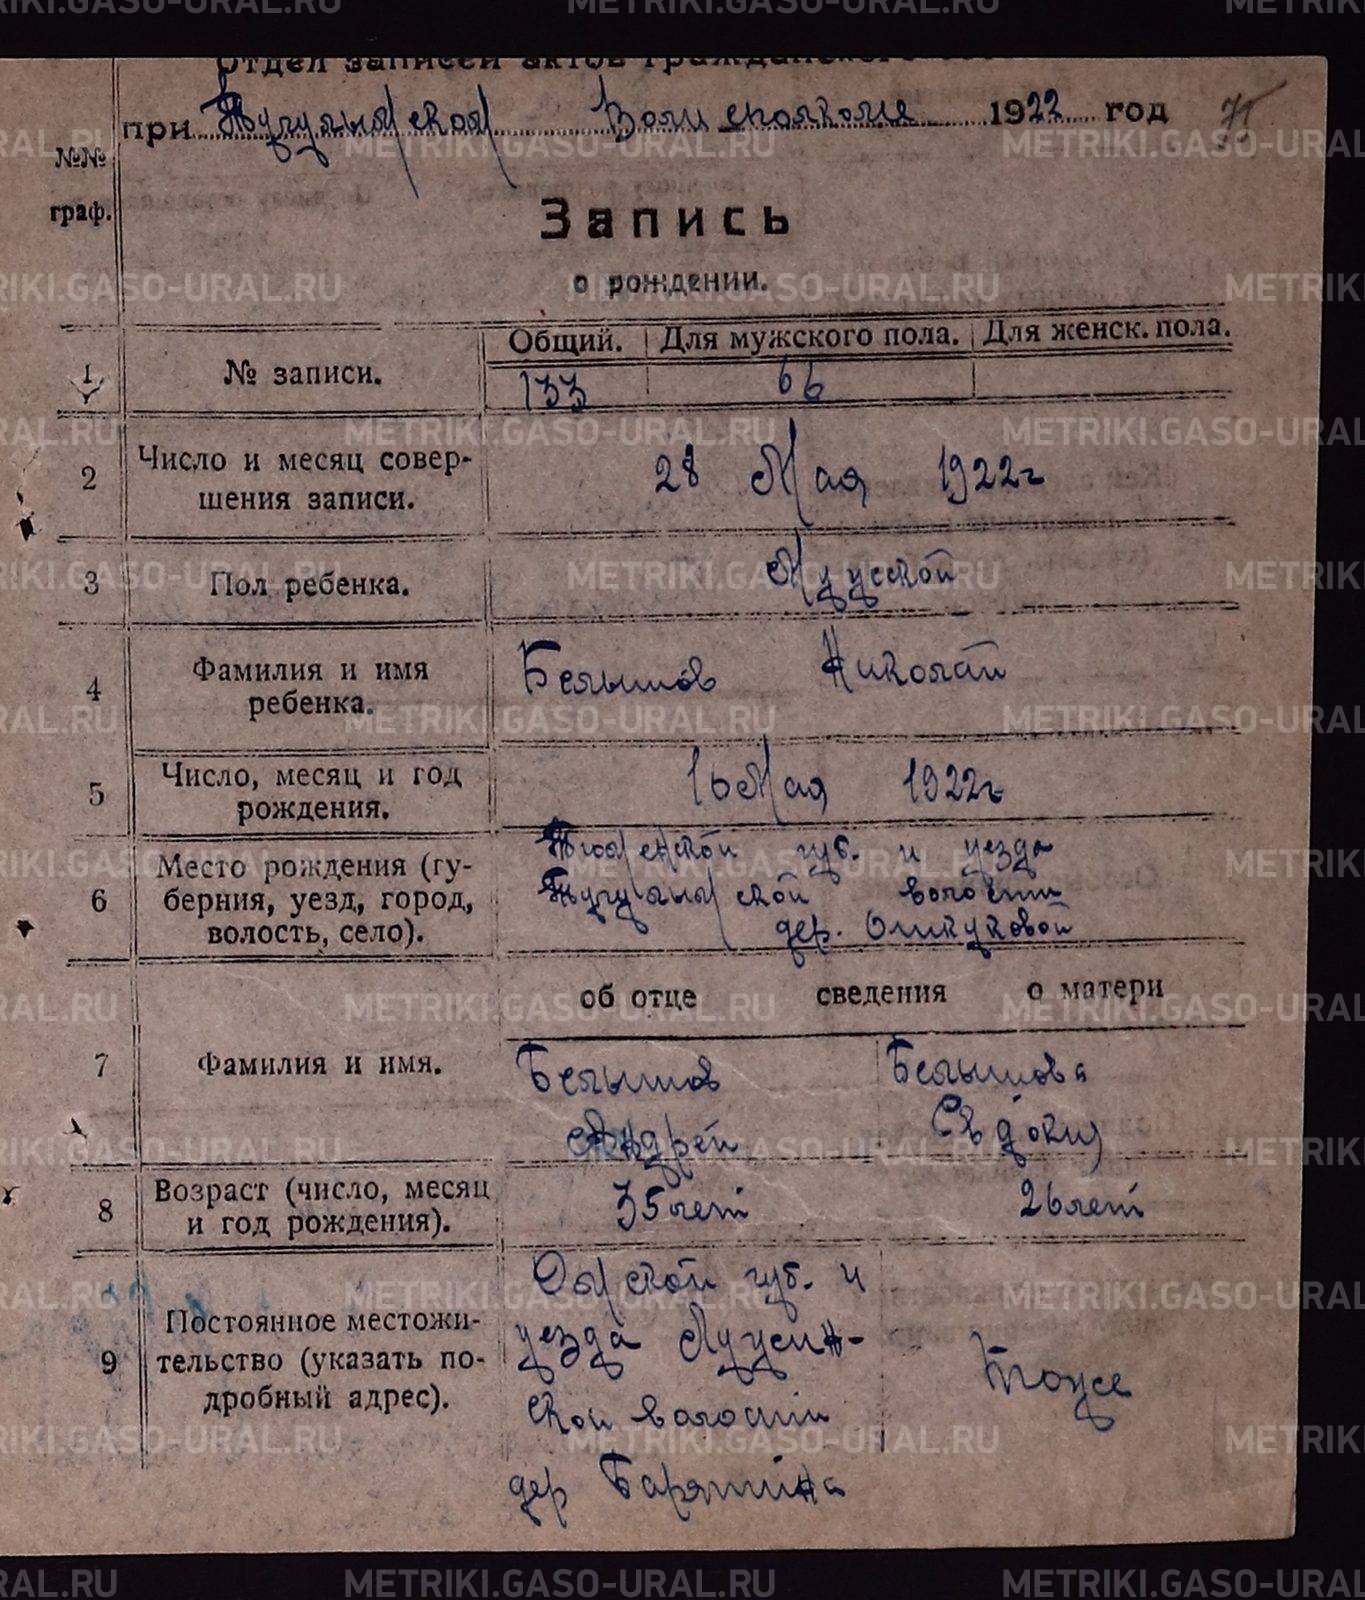 Отдел записей актов гражданского
при Тугулымской Волисполкоме 1922 год
75
№№ граф.
Запись
о рождении.
Общий. Для мужского пола. Для женск. пола.
1 № записи. 133 66
2 Число и месяц совершения записи. 28 Мая 1922г
3 Пол ребенка. Мужской
4 Фамилия и имя ребенка. Белышов Николай
5 Число, месяц и год рождения. 16 Мая 1922г
6 Место рождения (губерния, уезд, город, волость, село).
Тюменской губ. и уезда
Тугулымской волости
дер.
об отце сведения о матери
7 Фамилия и имя.
Белышов Белышова
Андрей Евдокия
8 Возраст (число, месяц и год рождения). 35 лет 26 лет
9 Постоянное местожительство (указать подробный адрес).
Омской губ. и
уезда
ской волости
дер
тоже
METRIKI.GASO-URAL.RU